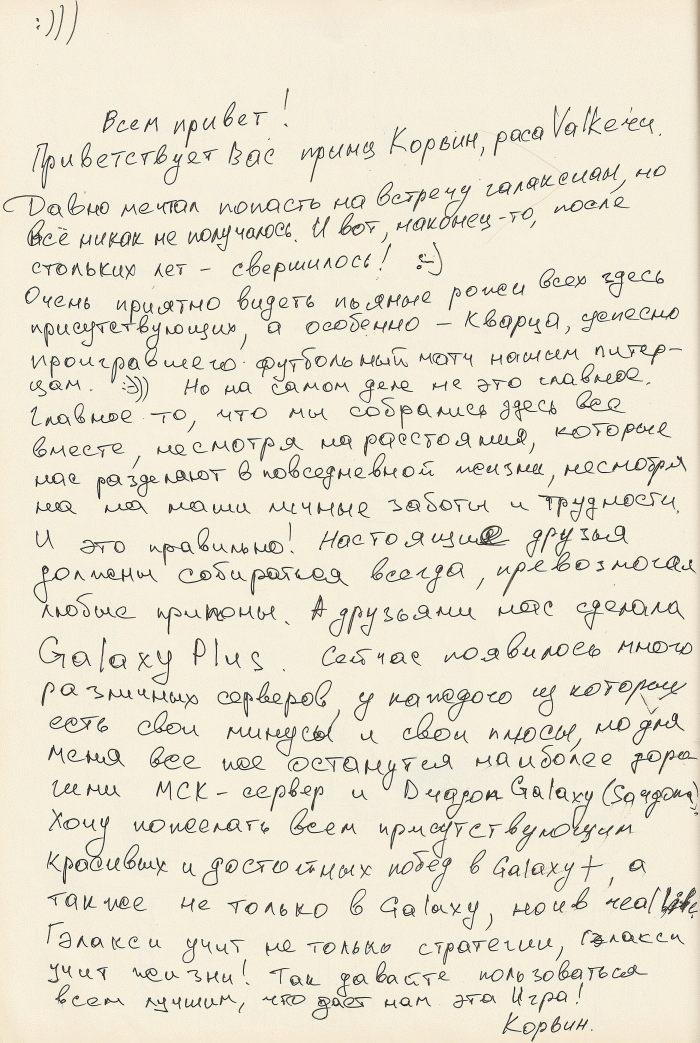 :)))
Всем привет!
Приветствует Вас принц Корвин, раса Valkery.
Давно мечтал попасть на встречу галаксиан, но
всё никак не получалось. И вот, наконец-то, после
стольких лет - свершилось! :-)
Очень приятно видеть пьяные рожи всех здесь
присутствующих, а особенно - Кварца, успешно
проигравшего футбольный матч нашим питер-
цам. :-)) Но на самом деле не это главное.
Главное то, что мы собрались здесь все
вместе, несмотря на расстояния, которые
нас разделяют в повседневной жизни, несмотря
на на наши личные заботы и трудности.
И это правильно! Настоящие друзья
должны собираться всегда, превозмогая
любые препоны. А друзьями нас сделала
Galaxy Plus. Сейчас появилось много
различных серверов, у каждого из которых
есть свои минусы и свои плюсы, но для
меня все же останутся наиболее доро
гими МСК-сервер и Dragon Galaxy
Хочу пожелать всем присутствующим
красивых и достойных побед в Galaxy+, а
также не только в Galaxy, но и в real life.
Гэлакси учит не только стратегии, Гэлакси
учит жизни! Так давайте пользоваться
всем лучшим, что даёт нам эта Игра!
Корвин.